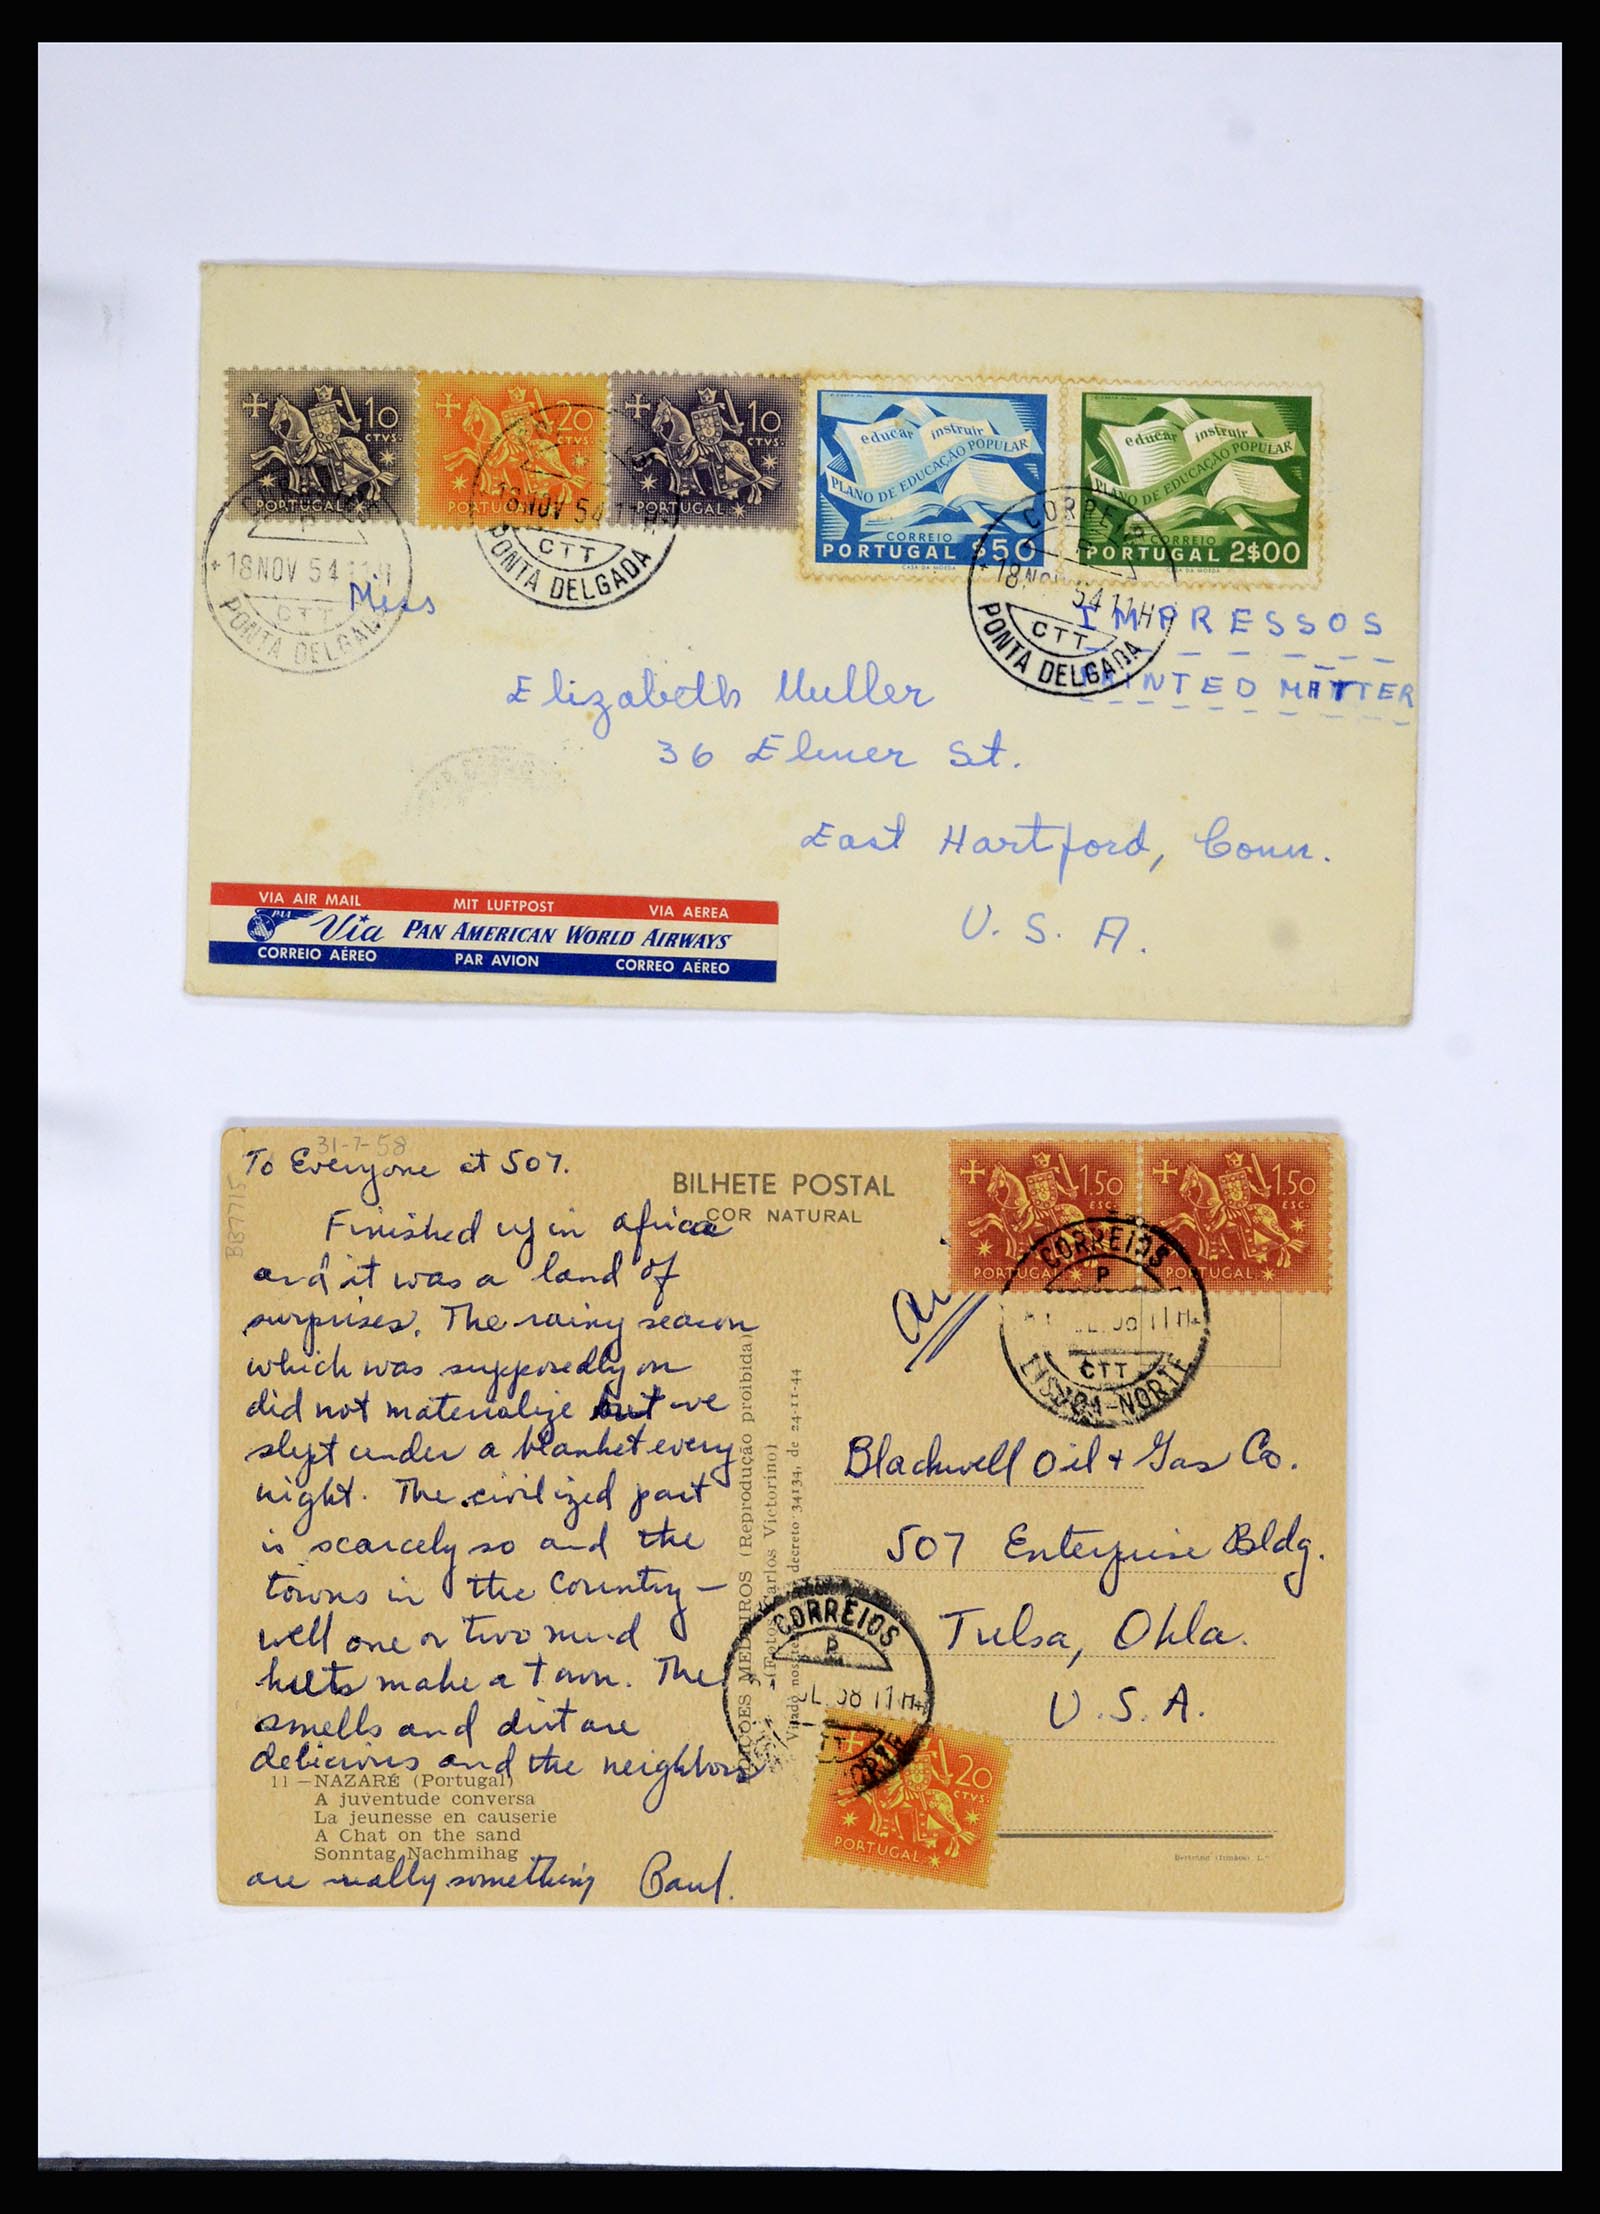 10 CTVS. PORTUGAL
20 CTVS. PORTUGAL
10 CTVS. PORTUGAL
educar instruir
PLANO DE EDUCAÇÃO POPULAR
CORREIO
PORTUGAL $50
CASA DA MOEDA
educar instruir
PLANO DE EDUCAÇÃO POPULAR
CORREIO
PORTUGAL 2$00
CASA DA MOEDA
18 NOV 54 11H
CTT
PONTA DELGADA
18 NOV 54 11H
CTT
PONTA DELGADA
CORREIOS
P
18 NOV 54 11H
CTT
PONTA DELGADA
IMPRESSOS
PRINTED MATTER
Miss
Elizabeth Muller
36 Elmer St.
East Hartford, Conn.
U. S. A.
VIA AIR MAIL MIT LUFTPOST VIA AEREA
PAA Via PAN AMERICAN WORLD AIRWAYS
CORREIO AÉREO PAR AVION CORREO AÉREO
31-7-58
BB7715
To Everyone at 507.
Finished up in africa
and it was a land of
surprises. The rainy season
which was supposedly on
did not materialize but we
slept under a blanket every
night. The civilized part
is scarcely so and the
towns in the country –
well one or two mud
huts make a town. The
smells and dirt are
delicious and the neighbors
are really something Paul.
BILHETE POSTAL
COR NATURAL
11 – NAZARÉ (Portugal)
A juventude conversa
La jeunesse en causerie
A Chat on the sand
Sonntag Nachmihag
EDIÇÕES MEDEIROS (Reprodução proibida)
(Fotos Carlos Victorino)
decreto 34134, de 24-11-44
1.50 ESC. PORTUGAL
1.50 ESC. PORTUGAL
CORREIOS
P
11H
CTT
LISBOA-NORTE
Blackwell Oil + Gas Co.
507 Enterprise Bldg.
Tulsa, Okla.
U.S.A.
CORREIOS
P
11H
CTT
20 CTVS. PORTUGAL
Bertrand (Irmãos) L.da